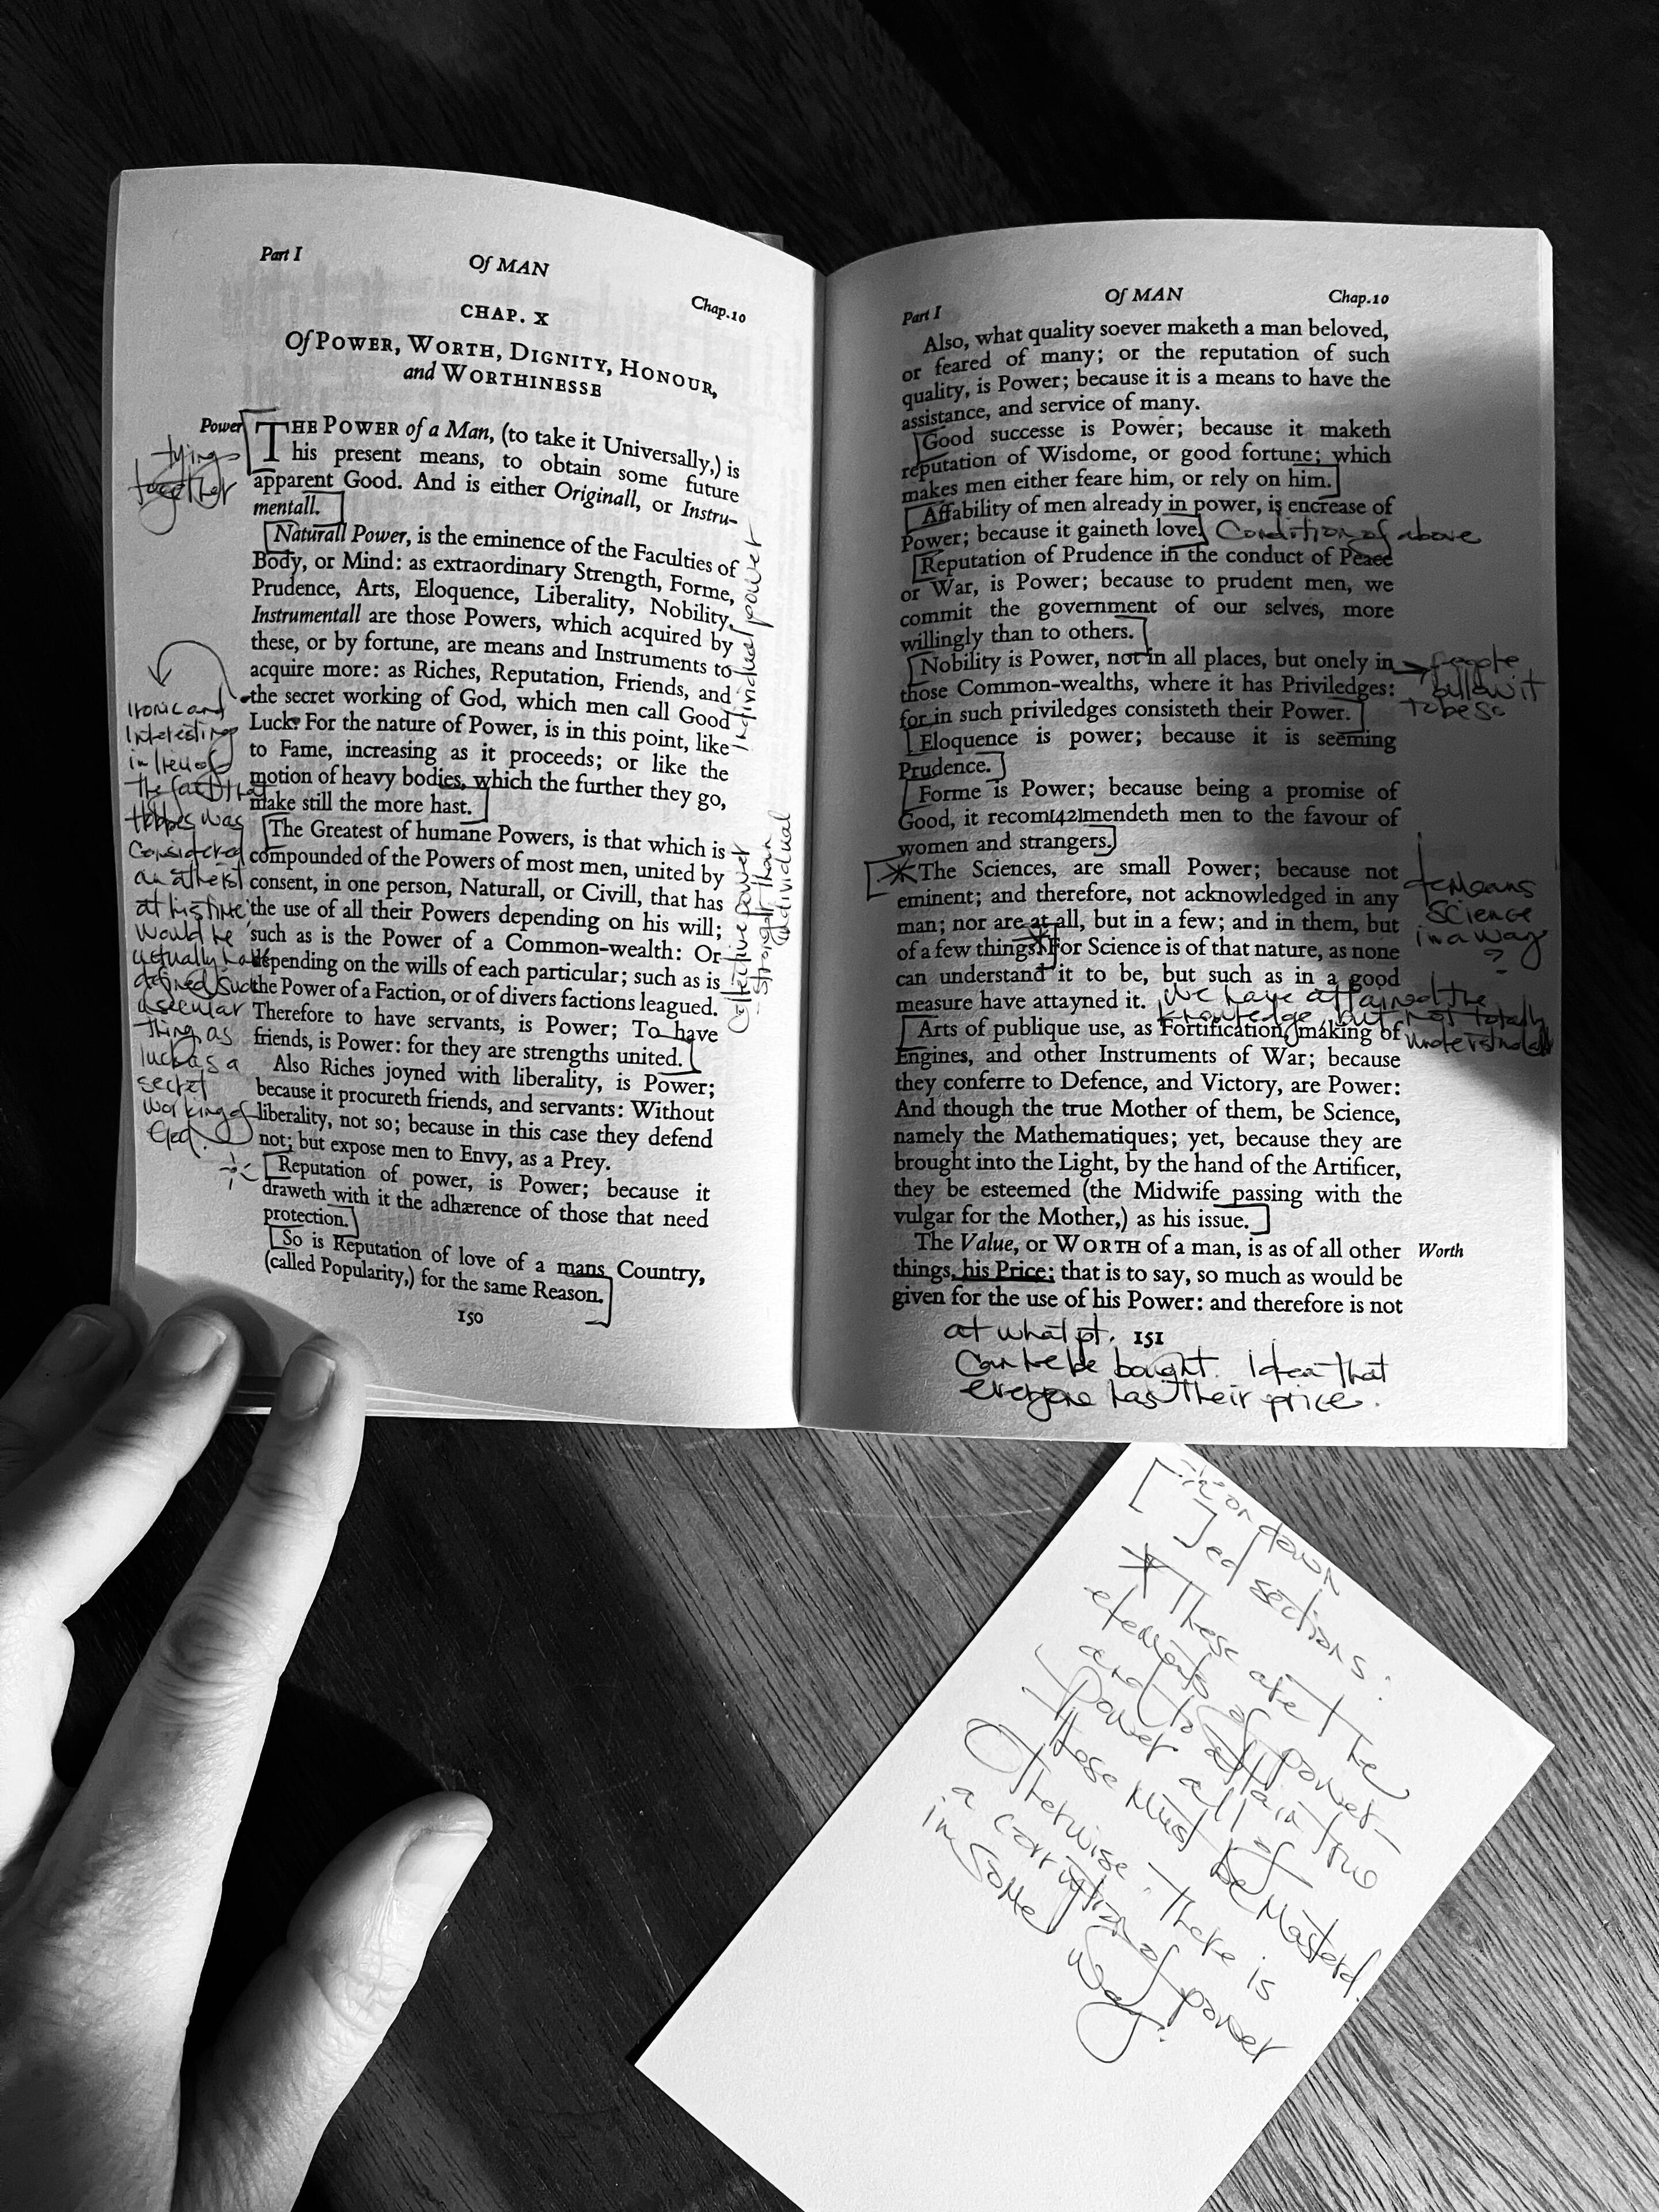 Part I
Of MAN
Chap.10
CHAP. X
Of POWER, WORTH, DIGNITY, HONOUR,
and WORTHINESSE
Power
THE POWER of a Man, (to take it Universally,) is
his present means, to obtain some future
apparent Good. And is either Originall, or Instru-
mentall.
Naturall Power, is the eminence of the Faculties of
Body, or Mind: as extraordinary Strength, Forme,
Prudence, Arts, Eloquence, Liberality, Nobility.
Instrumentall are those Powers, which acquired by
these, or by fortune, are means and Instruments to
acquire more: as Riches, Reputation, Friends, and
the secret working of God, which men call Good
Luck. For the nature of Power, is in this point, like
to Fame, increasing as it proceeds; or like the
motion of heavy bodies, which the further they go,
make still the more hast.
The Greatest of humane Powers, is that which is
compounded of the Powers of most men, united by
consent, in one person, Naturall, or Civill, that has
the use of all their Powers depending on his will;
such as is the Power of a Common-wealth: Or
depending on the wills of each particular; such as is
the Power of a Faction, or of divers factions leagued.
Therefore to have servants, is Power; To have
friends, is Power: for they are strengths united.
Also Riches joyned with liberality, is Power;
because it procureth friends, and servants: Without
liberality, not so; because in this case they defend
not; but expose men to Envy, as a Prey.
Reputation of power, is Power; because it
draweth with it the adhærence of those that need
protection.
So is Reputation of love of a mans Country,
(called Popularity,) for the same Reason.
150
tying
together
Ironic and
interesting
in lieu of
the fact that
Hobbes was
considered
an atheist
at his time
would he
actually have
defined such
a secular
thing as
luck as a
secret
working of
God.
individual power
Collective power
stronger than
individual
Part I
Of MAN
Chap.10
Also, what quality soever maketh a man beloved,
or feared of many; or the reputation of such
quality, is Power; because it is a means to have the
assistance, and service of many.
Good successe is Power; because it maketh
reputation of Wisdome, or good fortune; which
makes men either feare him, or rely on him.
Affability of men already in power, is encrease of
Power; because it gaineth love. Condition of above
Reputation of Prudence in the conduct of Peace
or War, is Power; because to prudent men, we
commit the government of our selves, more
willingly than to others.
Nobility is Power, not in all places, but onely in
those Common-wealths, where it has Priviledges:
for in such priviledges consisteth their Power.
people
allow it
to be so
Eloquence is power; because it is seeming
Prudence.
Forme is Power; because being a promise of
Good, it recom[42]mendeth men to the favour of
women and strangers.
The Sciences, are small Power; because not
eminent; and therefore, not acknowledged in any
man; nor are at all, but in a few; and in them, but
of a few things. For Science is of that nature, as none
can understand it to be, but such as in a good
measure have attayned it.
demeans
science
in a way
?
we have attained the
knowledge but not totally
understood
Arts of publique use, as Fortification, making of
Engines, and other Instruments of War; because
they conferre to Defence, and Victory, are Power:
And though the true Mother of them, be Science,
namely the Mathematiques; yet, because they are
brought into the Light, by the hand of the Artificer,
they be esteemed (the Midwife passing with the
vulgar for the Mother,) as his issue.
The Value, or WORTH of a man, is as of all other
Worth
things, his Price; that is to say, so much as would be
given for the use of his Power: and therefore is not
151
at what pt.
Can he be bought. Idea that
everyone has their price.
on down
[ ]ed sections:
* These are the
elements of power
and to attain true
Power all of
these must be Masterd.
Otherwise. There is
a corruption of power
in some way.